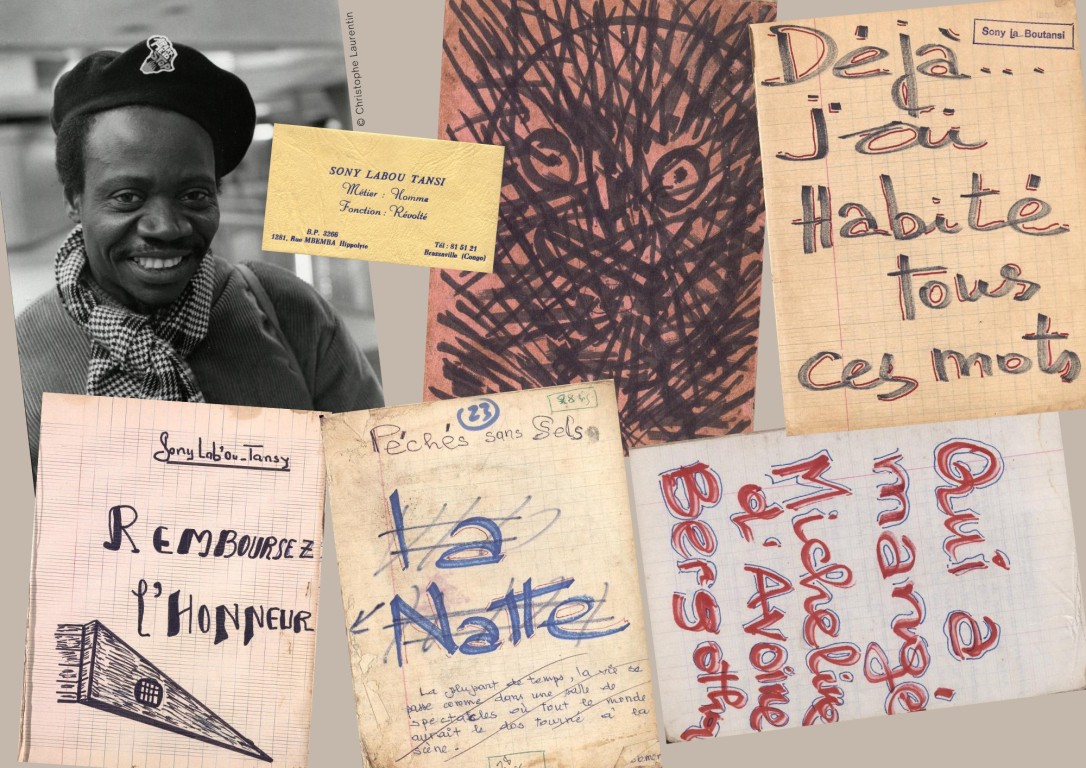 © Christophe Laurentin
SONY LABOU TANSI
Métier : Homme
Fonction : Révolté
B.P. 3266
1281, Rue MBEMBA Hippolyte
Tél : 81 51 21
Brazzaville (Congo)
Sony La_Boutansi
Déjà...
j'ai
Habité
tous
ces mots
Sony Lab'ou-Tansy
REMBOURSEZ
l'HONNEUR
23
Péchés sans Sels
La
Natte
La plupart de temps, la vie se
passe comme dans une salle de
spectacles où tout le monde
aurait le dos tourné à la
scène.
Qui a
mangé
Micheline
d'Avoine